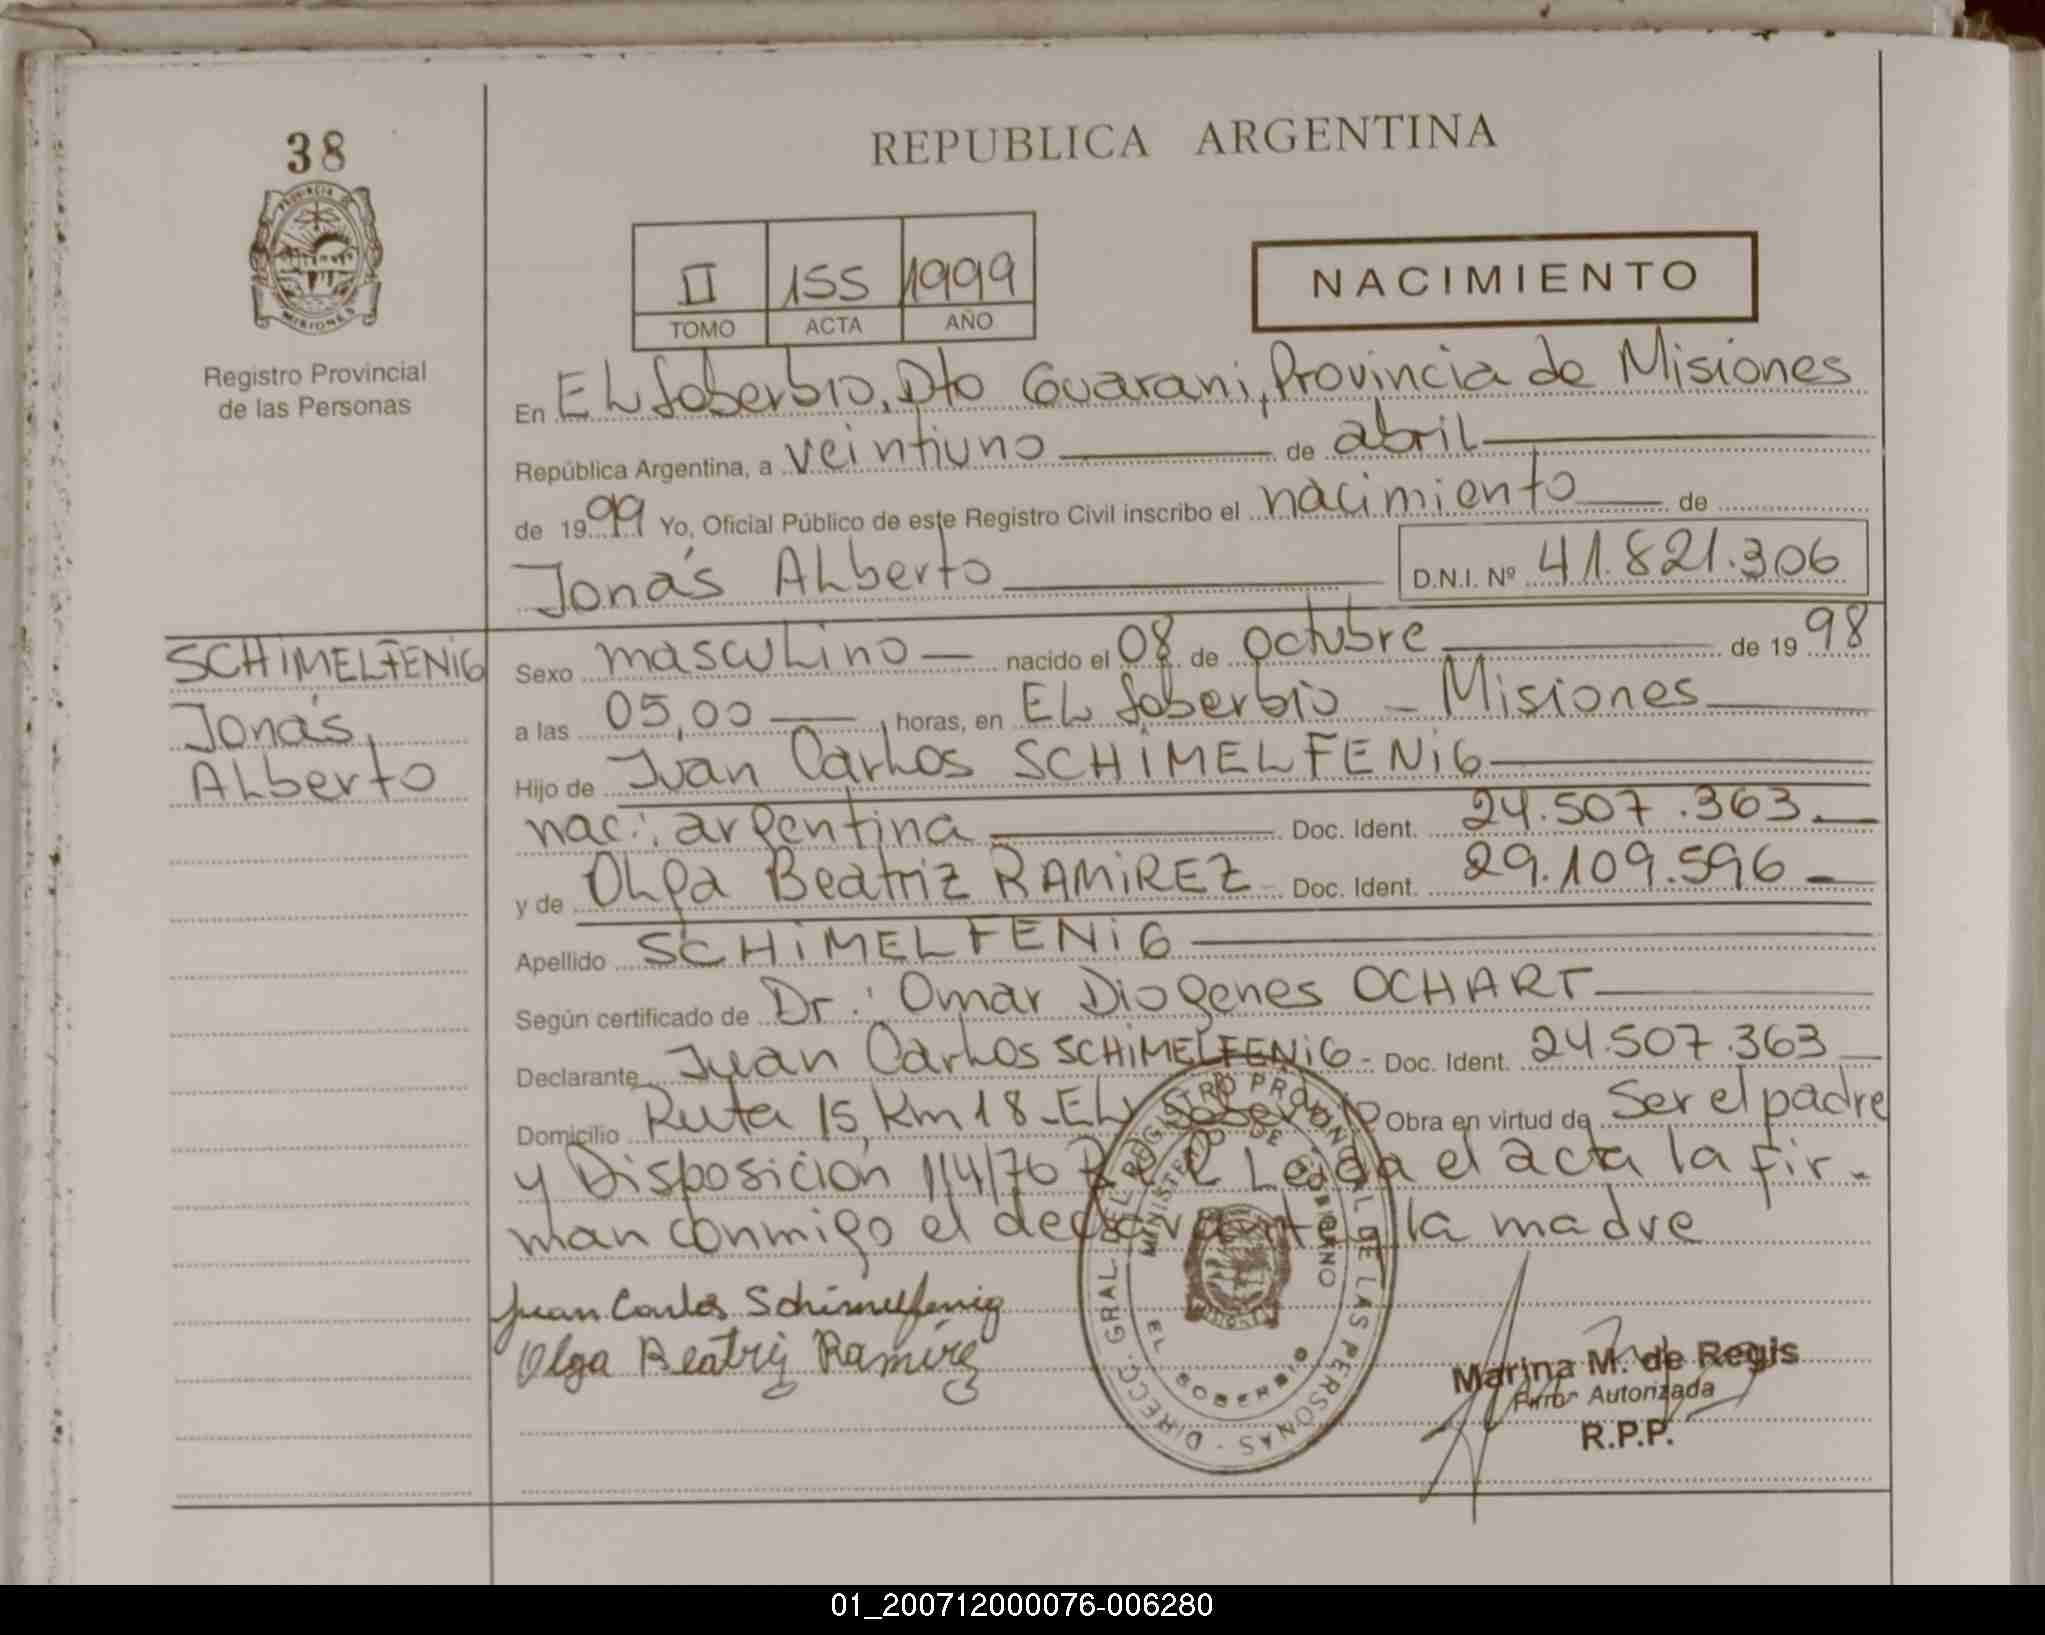 38
REPUBLICA ARGENTINA
II 155 1999
TOMO ACTA AÑO
NACIMIENTO
PROVINCIA DE
MISIONES
Registro Provincial
de las Personas
En EL Soberbio, Dto Guarani, Provincia de Misiones
República Argentina, a veintiuno de abril
de 1999 Yo, Oficial Público de este Registro Civil inscribo el nacimiento de
Jonás Alberto D.N.I. Nº 41.821.306
SCHIMELFENIG
Jonás,
Alberto
Sexo masculino nacido el 08 de octubre de 1998
a las 05,00, horas, en EL Soberbio - Misiones
Hijo de Juan Carlos SCHIMELFENIG
nac: argentina Doc. Ident. 24.507.363.
y de Olga Beatriz RAMIREZ Doc. Ident. 29.109.596
Apellido SCHIMELFENIG
Según certificado de Dr.: Omar Diogenes OCHART
Declarante Juan Carlos SCHIMELFENIG - Doc. Ident. 24.507.363
Domicilio Ruta 15, Km 18 - EL Soberbio Obra en virtud de Ser el padre
y Disposición 114/76 Leida el acta la fir-
man conmigo el declarante y la madre
Juan Carlos Schimelfenig
Olga Beatriz Ramirez
DIRECC. GRAL. DEL REGISTRO PROVINCIAL DE LAS PERSONAS -
MINISTERIO DE GOBIERNO
EL SOBERBIO
Marina M. de Regis
Firma Autorizada
R.P.P.
01_200712000076-006280